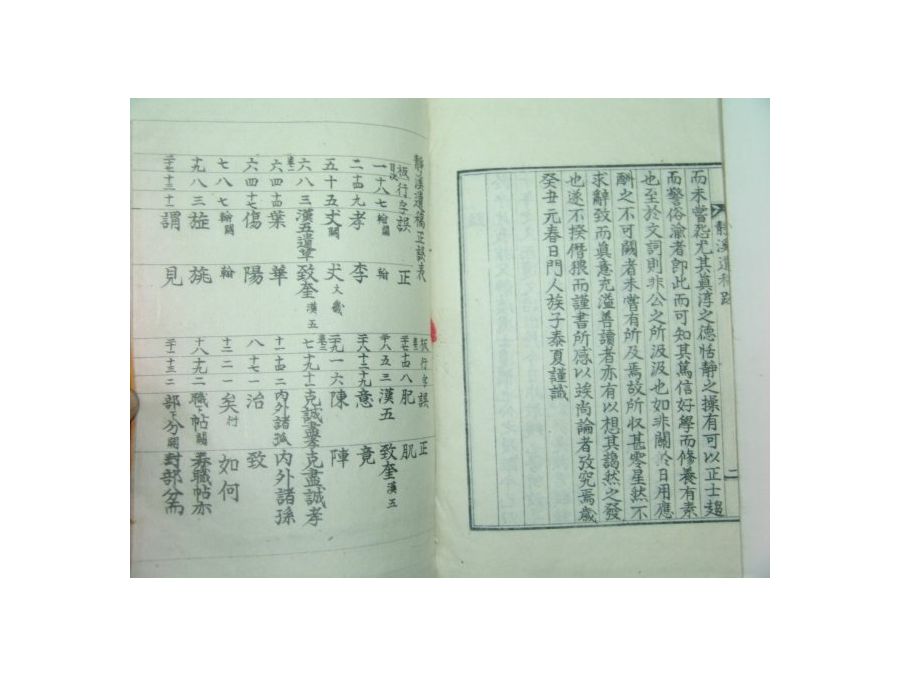 靜溪遺稿跋
二
而未嘗怨尤其眞淳之德恬靜之操有可以正士趨
而警俗渝者卽此而可知其篤信好學而修養有素
也至於文詞則非公之所汲汲也如非關於日用應
酬之不可闕者未嘗有所及焉故所收甚零星然不
求辭致而眞意充溢善讀者亦有以想其藹然之發
也遂不揆僭猥而謹書所感以竢尚論者攷究焉歲
癸丑元春日門人族子泰夏謹識
靜溪遺稿正誤表
板行字誤 正
目次 一 十八 七 輪闕 輪
二 十四 九 孝 李
五 十五 五 丈闕 丈
六 八 三 漢五遺筆 致奎漢五
卷二 六 四 四 葉 華
六 四 十七 傷 陽
七 八 七 輪闕 輪
十九 八 三 旋 旒
二十七 十三 十一 謂 見
板行字誤 正
卷二 二十七 十四 八 肥 肌
二十八 五 三 漢五 致奎漢五
二十八 十三 十九 意 竟
二十九 一 六 陳 陣
卷三 七 十九 十三 克誠盡孝 克盡誠孝
十一 十四 二 內外諸孤 內外諸孫
八 十七 一 治 致
十二 二 一 矣 如何
十八 十九 二 職下帖闕 職帖亦
二十一 十三 二 部下分闕 部分而